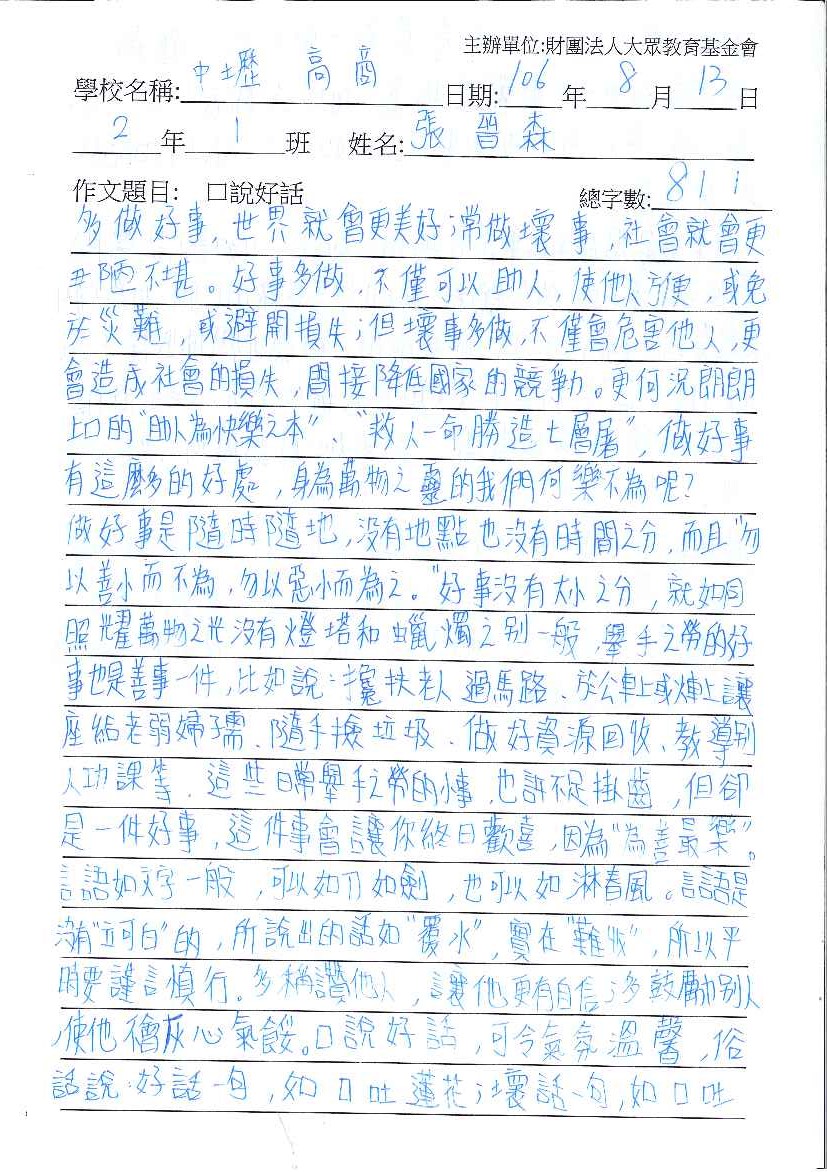 主辦單位:財團法人大眾教育基金會
學校名稱: 中壢 高商 日期: 106 年 8 月 13 日
2 年 1 班 姓名: 張晉森
作文題目: 口說好話 總字數: 811
多做好事,世界就會更美好;常做壞事,社會就會更
丑陋不堪。好事多做,不僅可以助人,使他人方便,或免
於災難,或避開損失;但壞事多做,不僅會危害他人,更
會造成社會的損失,間接降低國家的競爭力。更何況朗朗
上口的"助人為快樂之本"、"救人一命勝造七層屠",做好事
有這麼多的好處,身為萬物之靈的我們何樂不為呢?
做好事是隨時隨地,沒有地點也沒有時間之分,而且"勿
以善小而不為,勿以惡小而為之。"好事沒有大小之分,就如同
照耀萬物之光沒有燈塔和蠟燭之別一般,舉手之勞的好
事也是善事一件,比如說:攙扶老人過馬路、於公車上或火車上讓
座給老弱婦孺、隨手撿垃圾、做好資源回收、教導別
人功課等,這些日常舉手之勞的小事,也許不足掛齒,但卻
是一件好事,這件事會讓你終日歡喜,因為"為善最樂"。
言語如文字一般,可以如刀如劍,也可以如淋春風。言語是
沒有"立可白"的,所說出的話如"覆水",實在"難收",所以平
時要謹言慎行。多稱讚他人,讓他更有自信;多鼓勵別人
,使他不會灰心氣餒。口說好話,可令氣氛溫馨,俗
話說:好話一句,如口吐蓮花;壞話一句,如口吐